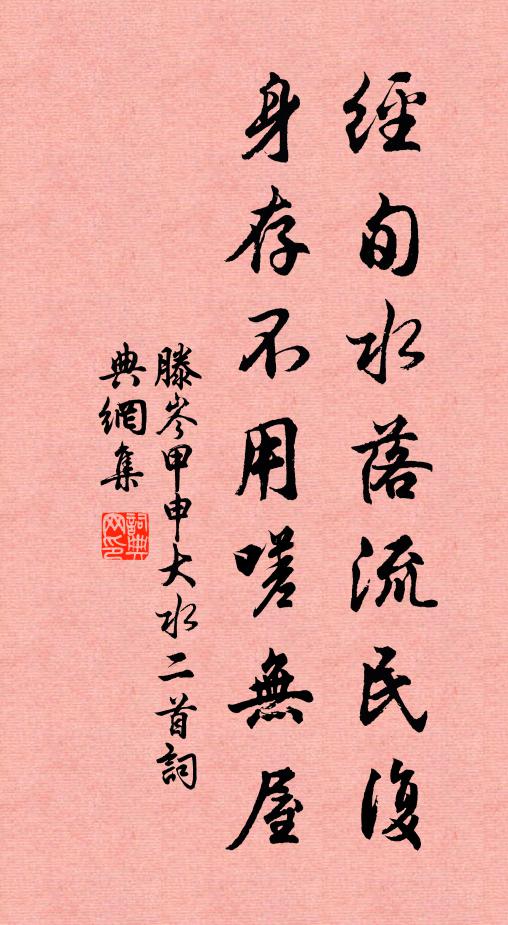 經旬水落流民復
身存不用嗟無屋
滕岑甲申大水二首詞
典網集
詞典網印